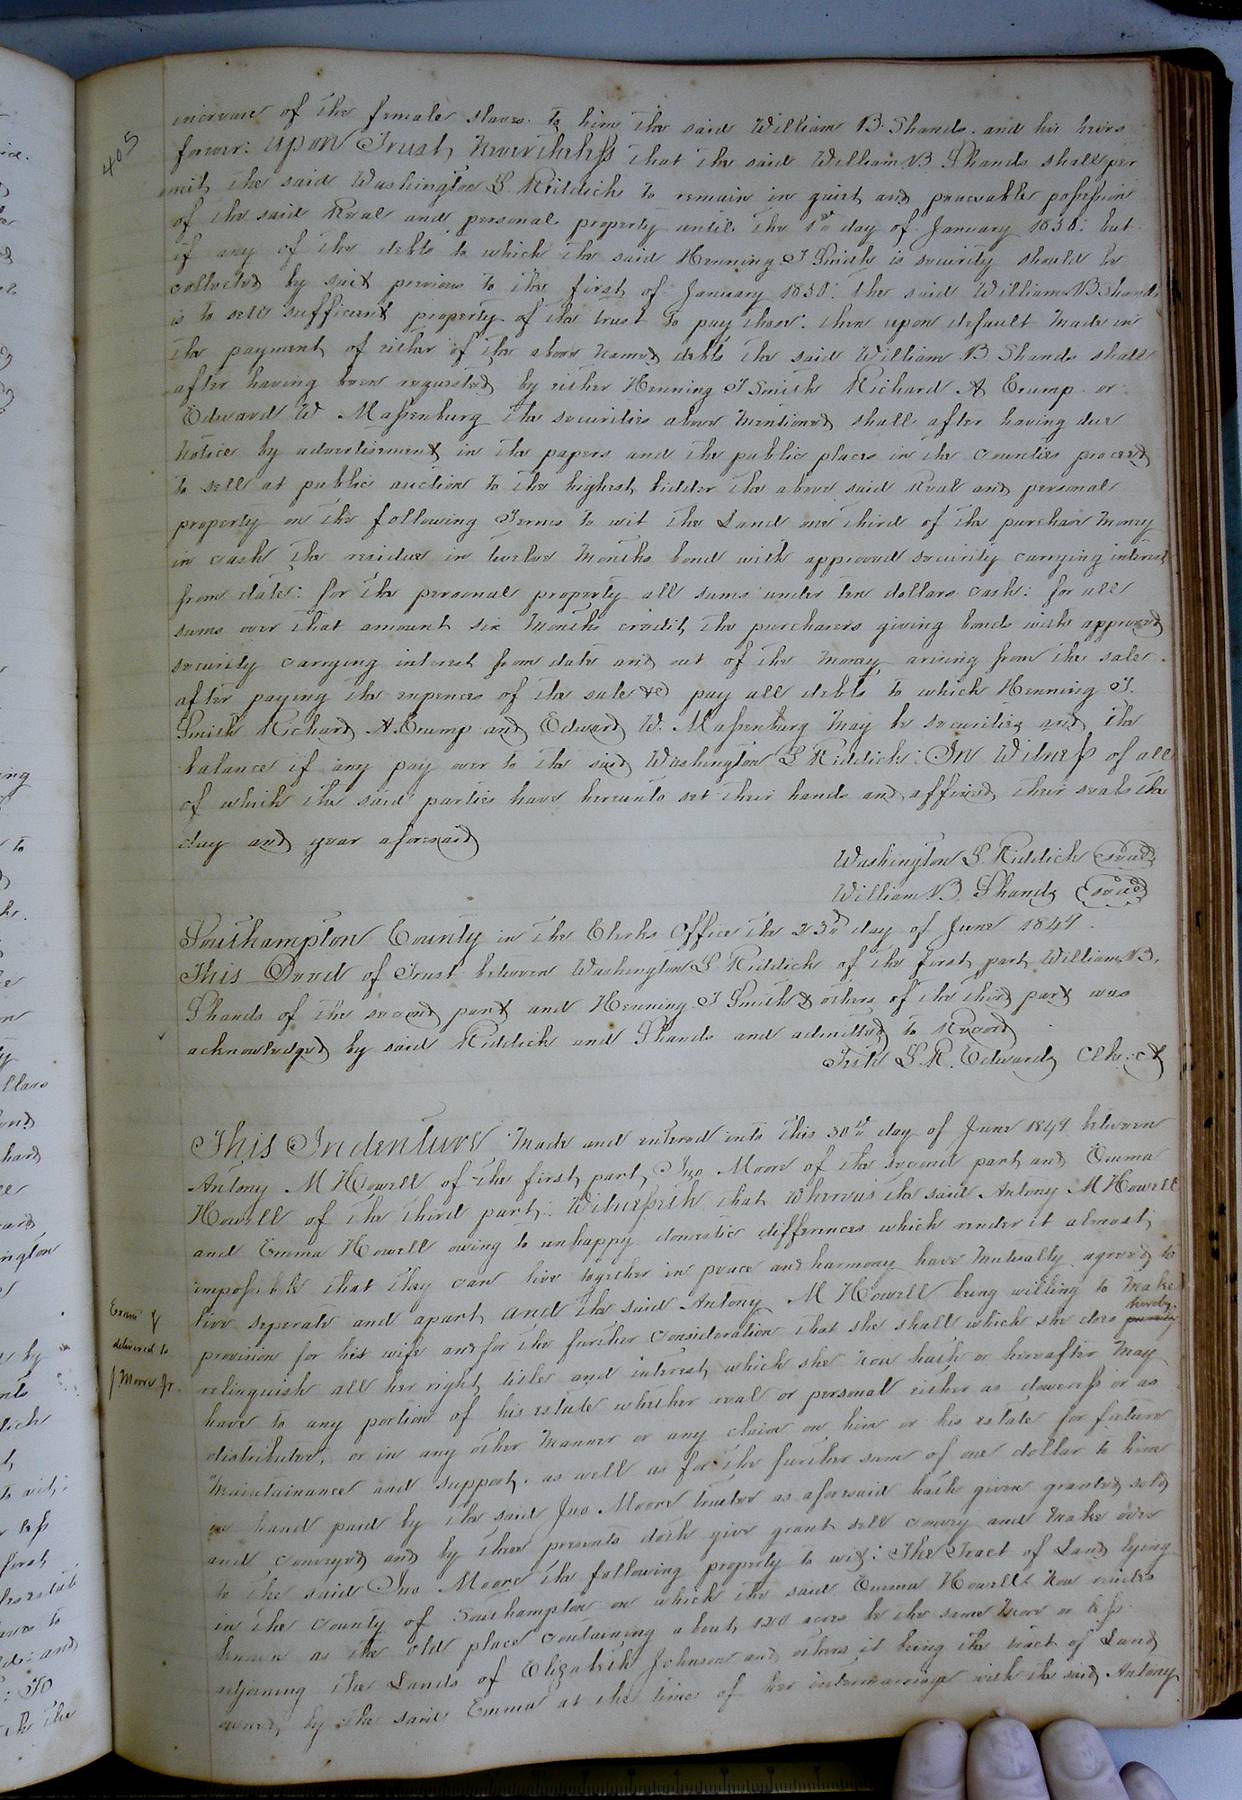 405
increase of the female slaves. To him the said William B. Shands. and his heirs
forever: Upon Trust, Nevertheless that the said William B. Shands shall per
mit, the said Washington S. Riddick to remain in quiet and peaceable possession
of the said Real and personal property until the 1st day of January 1850: but
if any of the debts to which the said Henning T Smith is security should be
collected by suit previous to the first of January 1850: the said William B Shands
is to sell sufficient property of the trust to pay them. then upon default made in
the payment of either of the above named debts the said William B Shands shall
after having been requested by either Henning T Smith Richard A Crump or
Edward W. Massenburg the securities above mentioned shall after having due
notice by advertisement in the papers and the public places in the counties proceed
to sell at public auction to the highest bidder the above said Real and personal
property on the following Terms to wit the Land one third of the purchase money
in cash the residue in twelve months bond with approved security carrying interest
from date: for the personal property all sums under ten dollars cash: for all
sums over that amount six months credit, the purchasers giving bonds with approved
security carrying interest from date and out of the money arising from the sale.
after paying the expences of the sale &c pay all debts to which Henning T.
Smith Richard A. Crump and Edward W. Massenburg may be securities and the
balance if any pay over to the said Washington S Riddick: In Witness of all
of which the said parties have hereunto set their hands and affixed their seals the
day and year aforesaid
Washington S. Riddick (seal)
William B. Shands (seal)
Southampton County in the Clerks Office the 23d day of June 1849.
This Deed of Trust between Washington S Riddick of the first part William B.
Shands of the second part and Henning T Smith & others of the third part was
acknowledged by said Riddick and Shands and admitted to Record
Teste L. R. Edwards Clk: ct
This Indenture Made and entered into this 30th day of June 1849 between
Antony M Howell of the first part, Jno Moore of the second part and Emma
Howell of the third part: Witnesseth that whereas the said Antony M Howell
and Emma Howell owing to unhappy domestic differences which render it almost
impossible that they can live together in peace and harmony have mutually agreed to
live seperate and apart and the said Antony M Howell being willing to make
hereby
provision for his wife and for the further consideration that she shall which she does
relinquish all her right, title and interest, which she now hath or hereafter may
have to any portion of his estate whether real or personal either as doweress or as
distributee, or in any other manner or any claim on him or his estate for future
maintainance and support. as well as for the further sum of one dollar to him
in hand paid by the said Jno Moore trustee as aforesaid hath given granted sold
and conveyed and by these presents doth give grant sell convey and make over
to the said Jno Moore the following property to wit: The Tract of Land lying
in the county of Southampton on which the said Emma Howell now resides
known as the old place containing about 120 acres be the same more or less
adjoining the Lands of Elizabeth Johnson and others it being the tract of Land
owned by the said Emma at the time of her intermarriage with the said Antony
Exam &
delivered to
J Moore Jr.